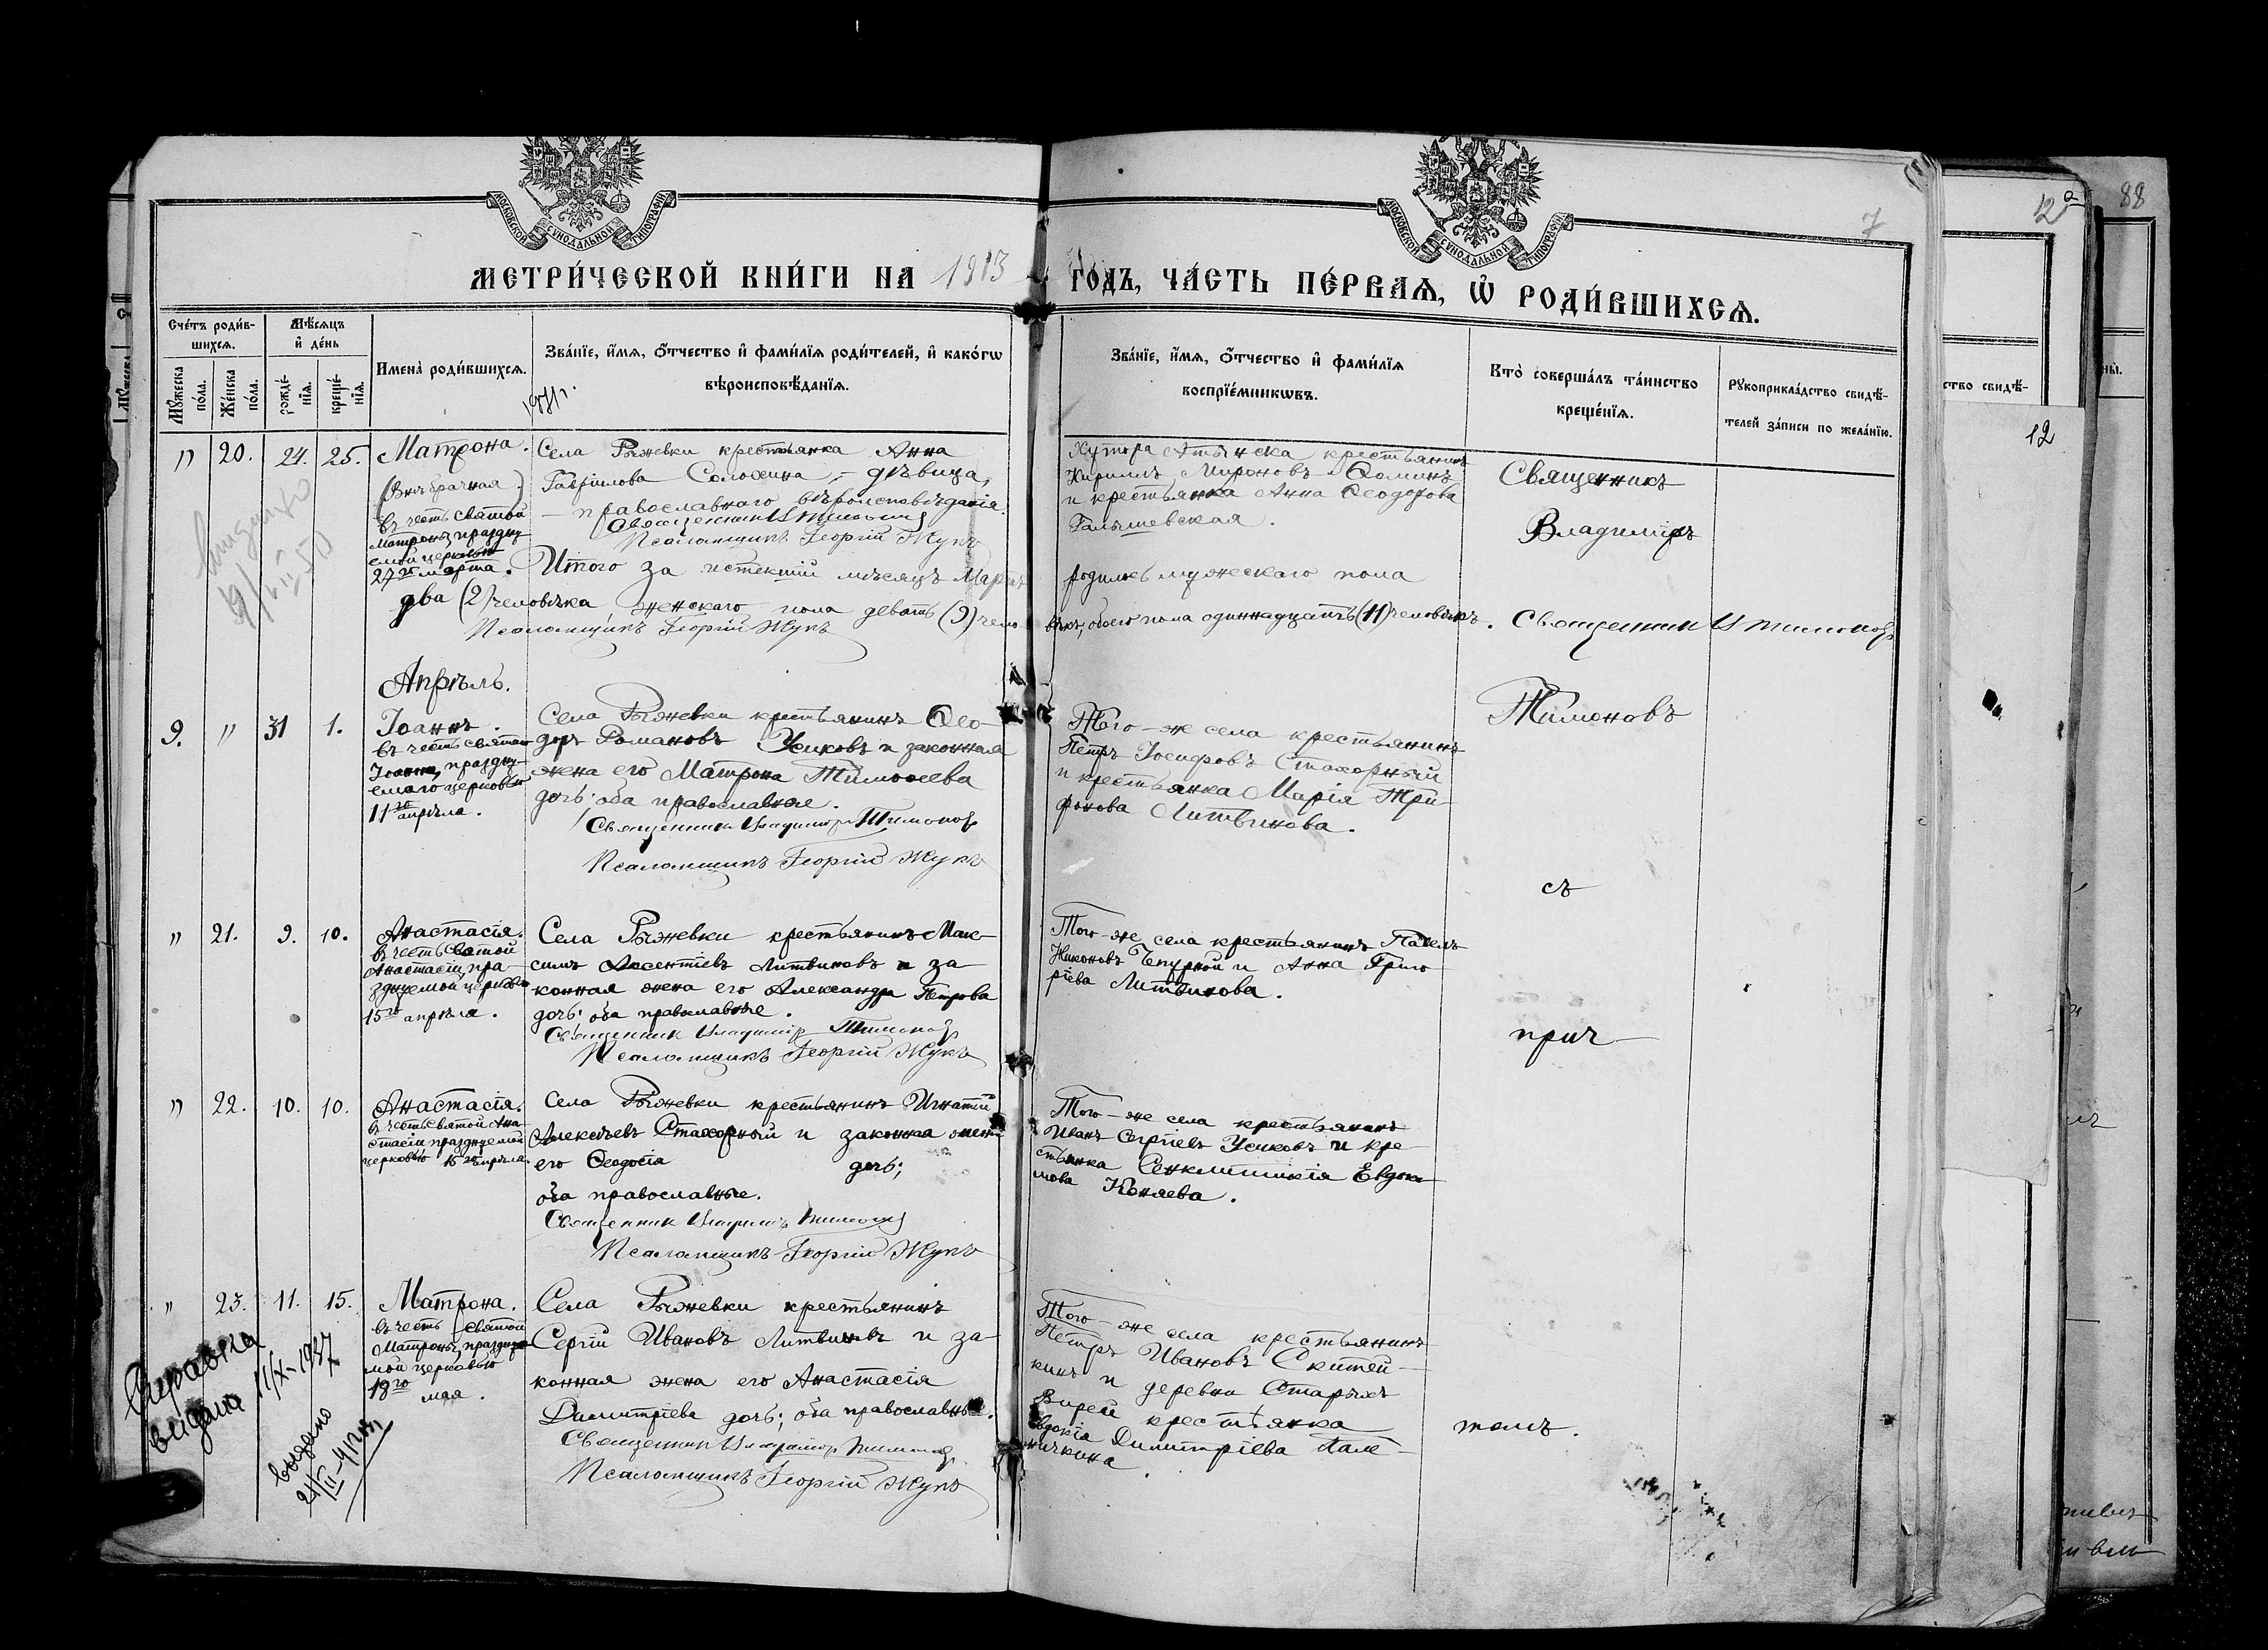 МОСКОВСКОЙ СУНОДАЛЬНОЙ ТИПОГРАФІИ
МОСКОВСКОЙ СУНОДАЛЬНОЙ ТИПОГРАФІИ
7
12
88
МЕТРИ́ЧЕСКОЙ КНИ́ГИ НА 1913 ГОДЪ, ЧА́СТЬ ПЕ́РВАѦ, Ѡ РОДИ́ВШИХСѦ.
Сче́тъ роди́в-
шихсѧ.
Мѣ́сѧцъ
и де́нь
Мꙋ́жеска
по́ла.
Же́нска
по́ла.
рожде́-
нїѧ.
креще́-
нїѧ.
Имена̀ роди́вшихсѧ.
Зва́нїе, и́мѧ, ѻ҆́тчество и҆ фами́лїѧ роди́телей, и҆ како́гѡ
вѣроисповѣ́данїѧ.
Зва́нїе, и́мѧ, ѻ҆́тчество и҆ фами́лїѧ
воспрїе́мникѡвъ.
Кто̀ соверша́лъ та́инство
креще́нїѧ.
Рꙋкоприкла́дство свидѣ́-
телей за́писи по жела́нїю.
ство свидѣ́-
12
" 20. 24. 25. Матрона.
(Внѣбрачная)
въ честь святой
Матроны праздну-
емой церковью
27го марта.
Села Рыжевки крестьянка Анна
Гавріилова Солохина, - дѣвица,
- православнаго вѣроисповѣданія.
Псаломщикъ Георгій Жукъ
Хутора крестьянинъ
Кириллъ Мироновъ Ѳоминъ
и крестьянка Анна Ѳеодорова
Галышевская.
Священникъ
Владиміръ
Итого за истекшій мѣсяцъ Мартъ родилось мужескаго пола
два (2) человѣка, женскаго пола девять (9) чело вѣкъ, обоего пола одиннадцать (11) человѣкъ. Священникъ В Тимоновъ
Псаломщикъ Георгій Жукъ
Апрѣль.
9. " 31 1. Іоаннъ.
въ честь святаго
Іоанна, праздну-
емаго церковью
11го апрѣля.
Села Рыжевки крестьянинъ Ѳео-
доръ Романовъ Усиковъ и законная
жена его Матрона Тимоѳеева
дочь; оба православные.
Священникъ Владиміръ Тимоновъ
Псаломщикъ Георгій Жукъ
Того-же села крестьянинъ
Петръ Іосифовъ Стахорный
и крестьянка Марія Три-
фонова Литвинова.
Тимоновъ
съ
" 21. 9. 10. Анастасія.
въ честь святой
Анастасіи, пра-
зднуемой церковью
15го апрѣля.
Села Рыжевки крестьянинъ Мак-
симъ Авксентіевъ Литвиновъ и за-
конная жена его Александра Петрова
дочь; оба православные.
Священникъ Владиміръ Тимоновъ
Псаломщикъ Георгій Жукъ
Того-же села крестьянинъ Павелъ
Никоновъ Чепурной и Анна Григо-
ріева Литвинова.
прич-
" 22. 10. 10. Анастасія.
въ честь святой Ана-
стасіи празднуемой
церковью 15го апрѣля
Села Рыжевки крестьянинъ Игнатій
Алексѣевъ Стахорный и законная жена
его Ѳеодосія дочь;
оба православные.
Священникъ Владиміръ Тимоновъ
Псаломщикъ Георгій Жукъ
Того-же села крестьянинъ
Иванъ Сергіевъ Усиковъ и кре-
стьянка Синклитикія Евдоки-
мова Коняева.
" 23. 11. 15. Матрона.
въ честь святой
Матроны, праздnуе-
мой церковью
18го мая.
Села Рыжевки крестьянинъ
Сергій Ивановъ Литвиновъ и за-
конная жена его Анастасія
Димитріева дочь; оба православные.
Священникъ Владиміръ Тимоновъ
Псаломщикъ Георгій Жукъ
Того-же села крестьянинъ
Петръ Ивановъ Скитей-
кинъ и деревни Старыхъ
Вирей крестьянка
Евдокія Димитріева
томъ.
Справка
видана 11/X-1937
выдано